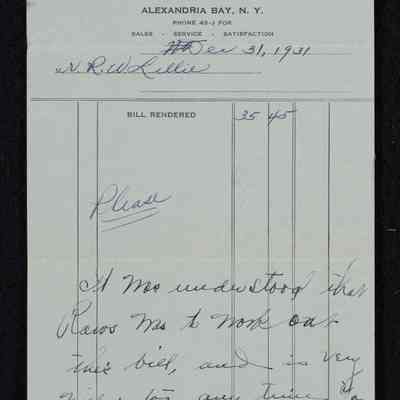 ALEXANDRIA BAY, N. Y.
PHONE 45-J FOR
SALES - SERVICE - SATISFACTION
Dec 31, 1931
R. W. Lillie
BILL RENDERED 35 45
Please
It was understood that
was to work out
this bill, and is very
any time